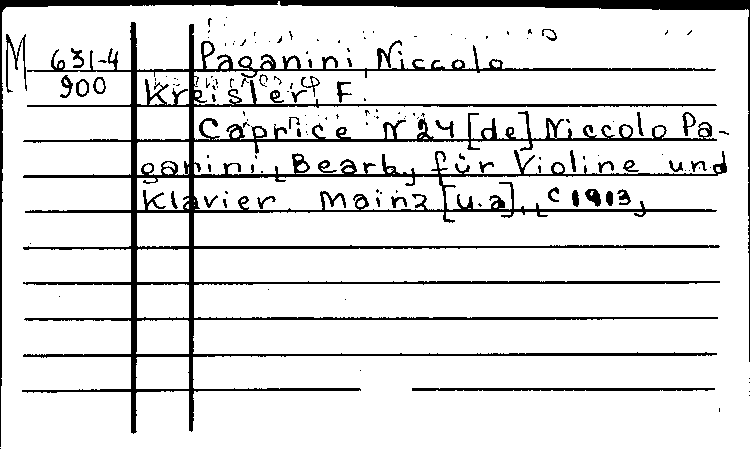 M 631-4 Paganini, Niccolo
900 Kreisler, F.
Caprice N 24 [de] Niccolo Pa-
ganini, [Bearb.] für Violine und
Klavier. Mainz [u.a], [c 1913]